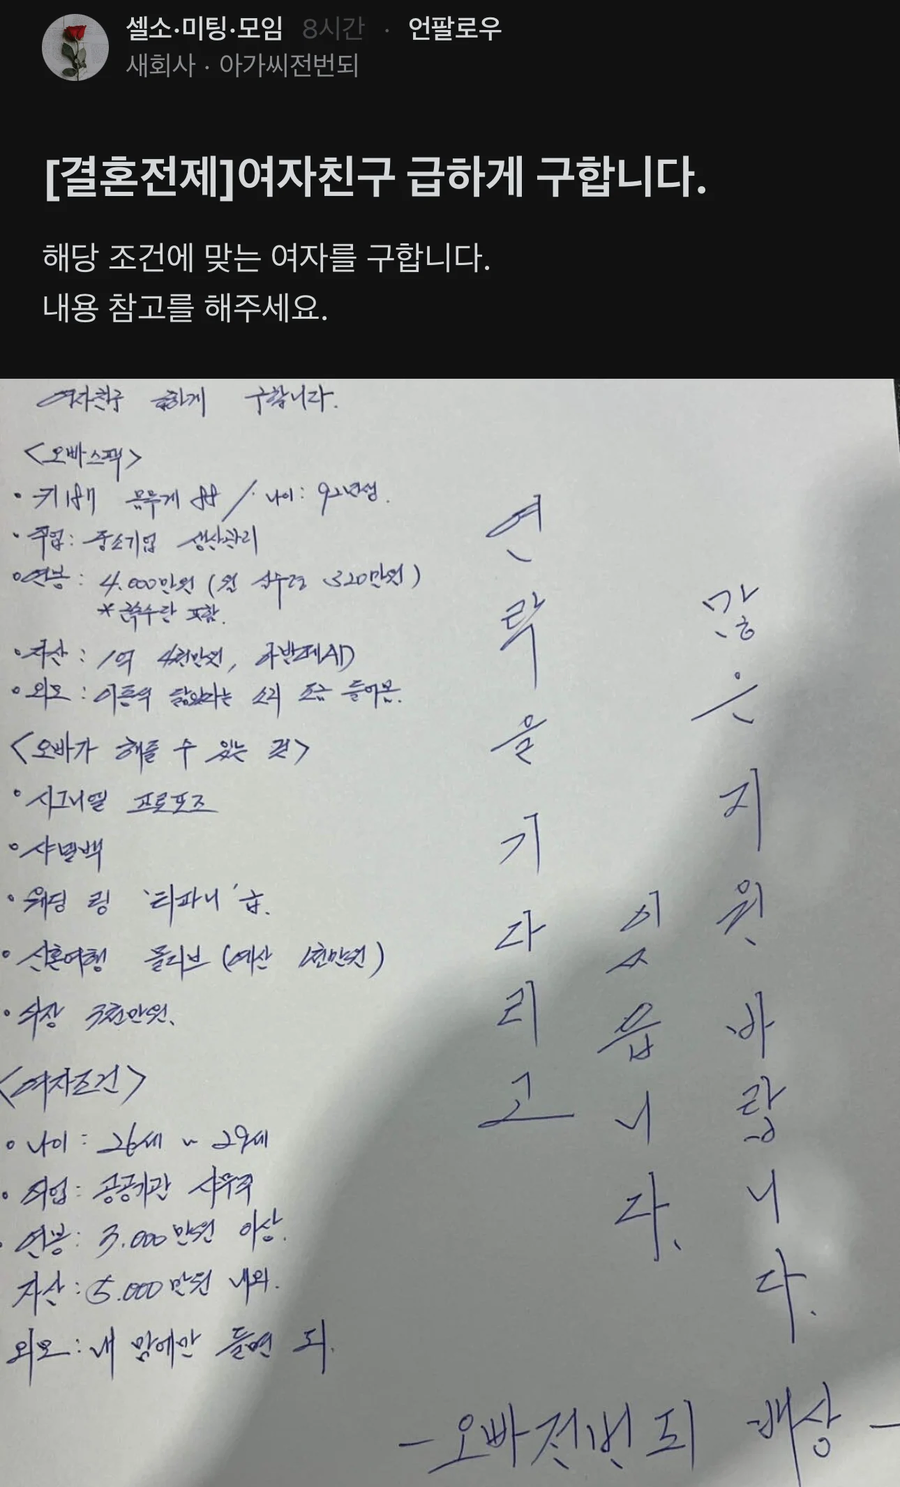 셀소·미팅·모임 8시간 · 언팔로우
새회사 · 아가씨전번되
[결혼전제]여자친구 급하게 구합니다.
해당 조건에 맞는 여자를 구합니다.
내용 참고를 해주세요.
여자친구 급하게 구합니다.
<오빠스펙>
• 키 몸무게 / 나이: 92년생.
• 직업: 중소기업 생산관리
• 연봉: 4.000만원 (월 실수령 320만원)
* 특수당 포함.
• 자산: 1억 4천만원,
• 외모: 닮았다는 소리 조금 들어봄.
<오빠가 해줄 수 있는 것>
• 시그니엘 프로포즈
• 샤넬백
• 웨딩 링 '티파니' 급.
• 신혼여행 몰디브 (예산 1천만원)
• 3천만원.
<여자조건>
• 나이: 26세 ~ 29세
• 직업: 공공기관 사무직
• 연봉: 3.000만원 이상.
자산: 5.000만원 내외.
외모: 내 맘에만 들면 되.
연락을 기다리고
있읍니다.
많은 지원 바랍니다.
- 오빠전번되 배상 -